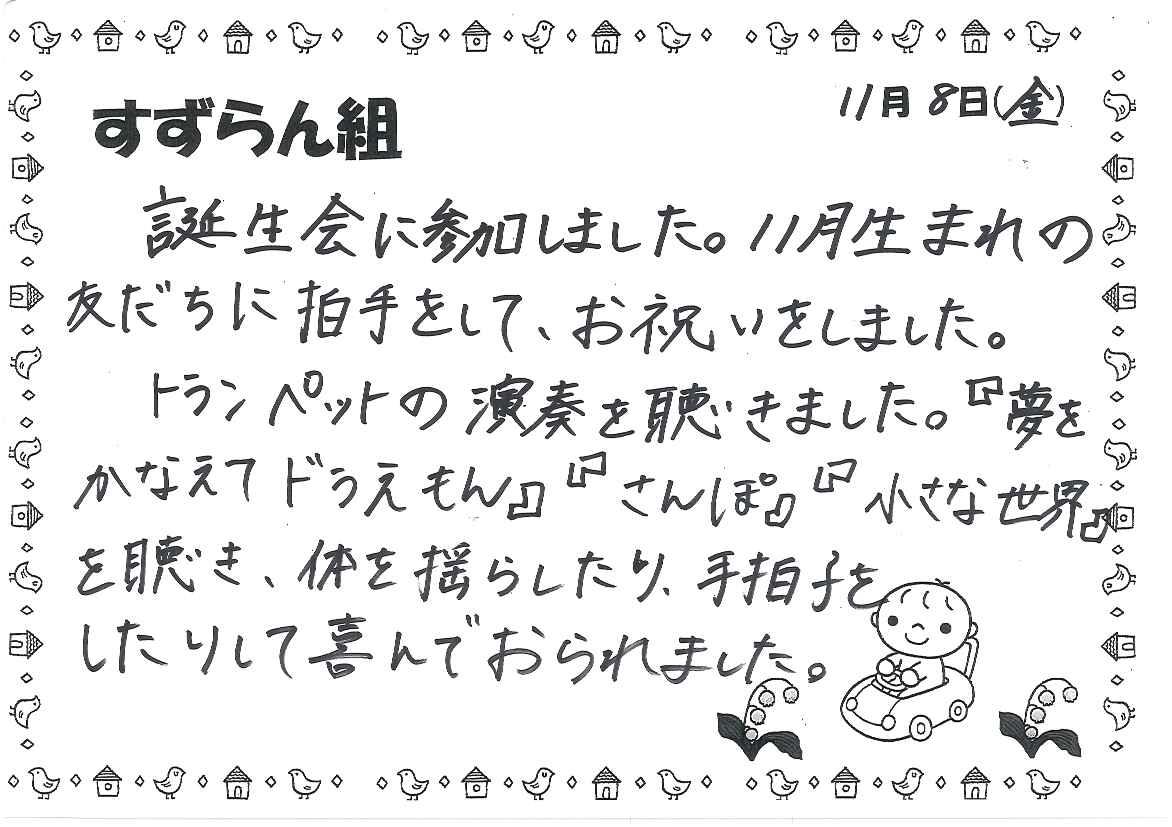 すずらん組
11月8日(金)
誕生会に参加しました。11月生まれの
友だちに拍手をして、お祝いをしました。
トランペットの演奏を聴きました。『夢を
かなえてドラえもん』『さんぽ』『小さな世界』
を聴き、体を揺らしたり、手拍子を
したりして喜んでおられました。